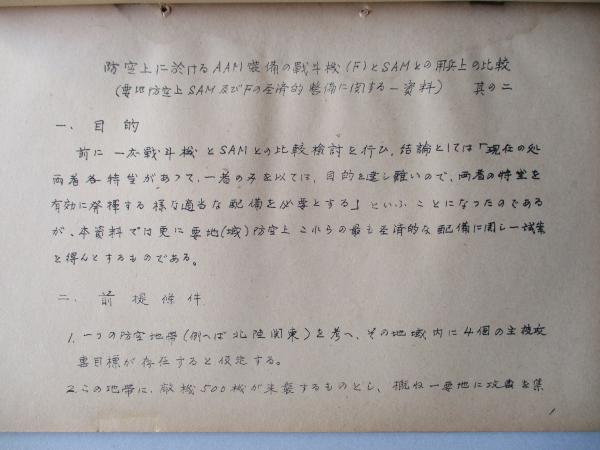 防空上に於けるAAM装備の戰斗機(F)とSAMとの用兵上の比較
(要地防空上SAM及びFの圣済的整備に関する一資料) 其の二
一、目的
前に一応戦斗機とSAMとの比較検討を行ひ、結論としては「現在の処
両者各特皇があつて、一者のみを以ては、目的を達し難いので、両者の特皇を
有効に発揮する様な適当な配備を必要とする」といふことになつたのである
が、本資料では更に要地(域)防空上これらの最も圣済的な配備に関し一試案
を得んとするものである。
二、前提條件
1.一つの防空地帯(例へば北陸関東)を考へ、その地域内に4個の主被攻
撃目標が存在すると仮定する。
2.この地帯に、敵機500機が来襲するものとし、概ね一要地に攻撃を集
1